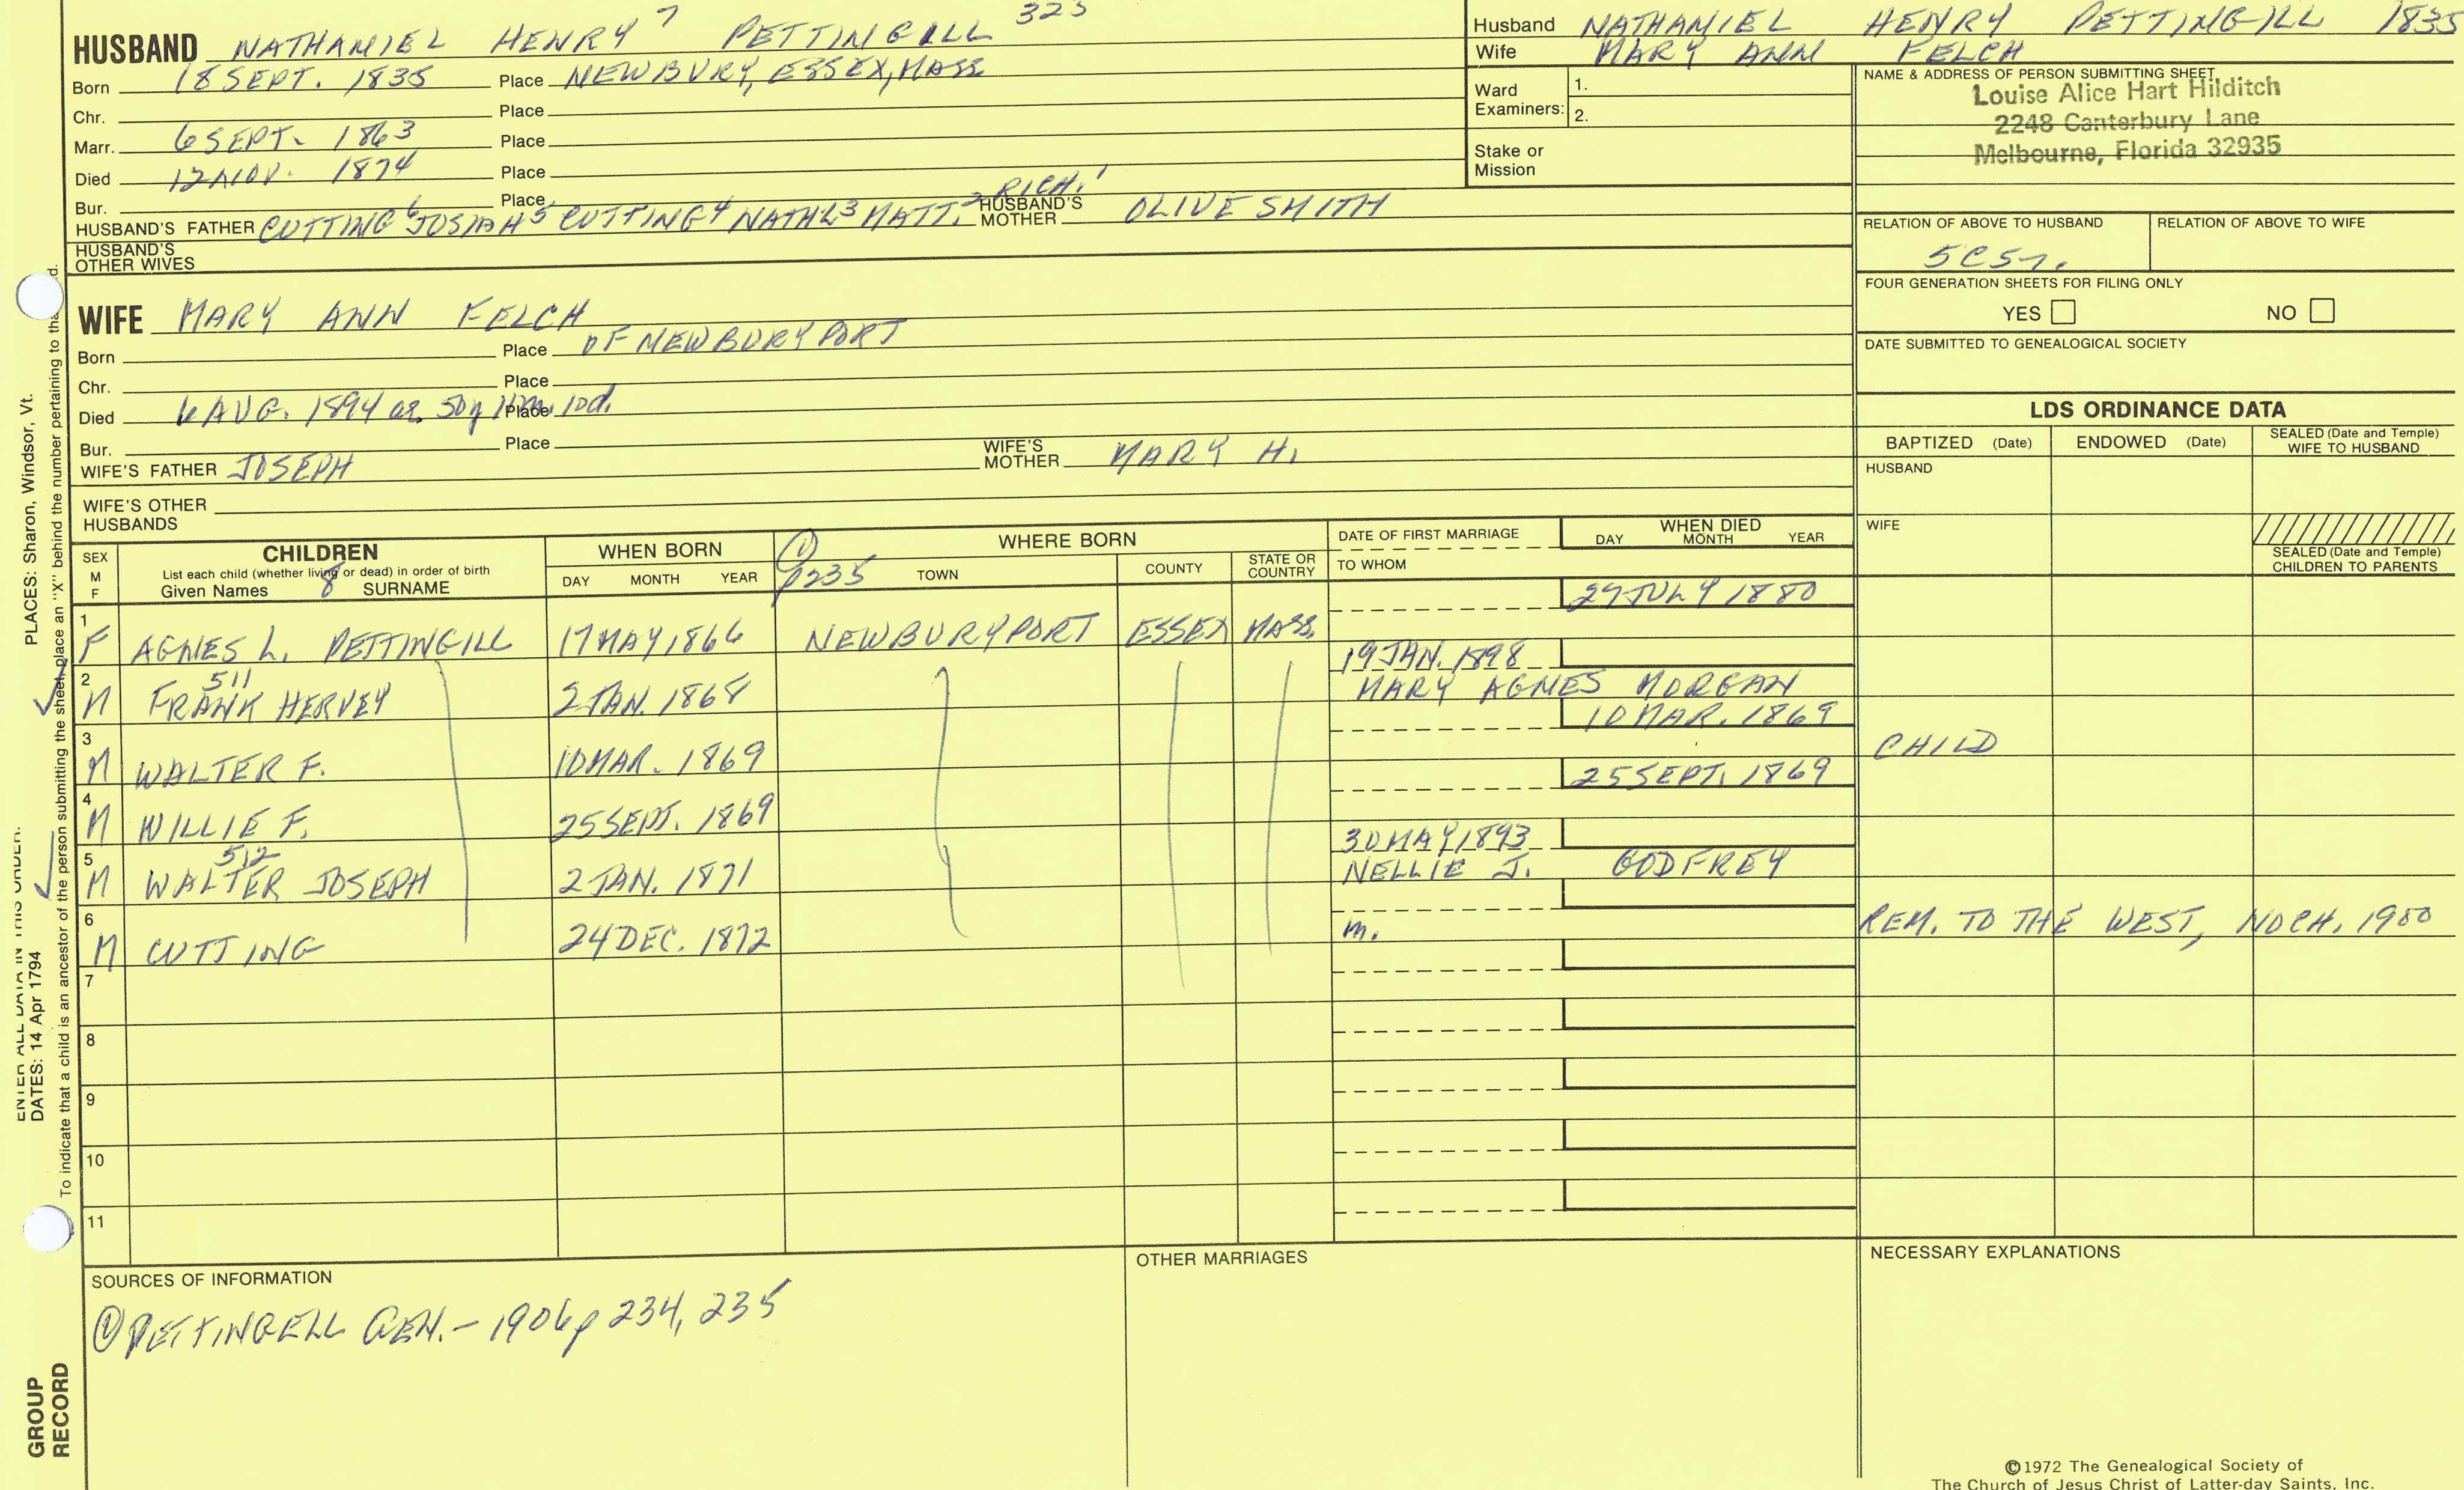 HUSBAND NATHANIEL HENRY 7 PETTINGILL 323
Born 18 SEPT. 1835 Place NEWBURY, ESSEX, MASS
Chr. Place
Marr. 6 SEPT. 1863 Place
Died 12 NOV. 1874 Place
Bur. Place RICH. 1
HUSBAND'S FATHER CUTTING 6 JOSIAH 5 CUTTING 4 NATHL 3 MATT. 2 HUSBAND'S MOTHER OLIVE SMITH
HUSBAND'S OTHER WIVES
Husband NATHANIEL HENRY PETTINGILL 1835
Wife MARY ANN FELCH
Ward Examiners: 1.
2.
Stake or Mission
NAME & ADDRESS OF PERSON SUBMITTING SHEET
Louise Alice Hart Hilditch
2248 Canterbury Lane
Melbourne, Florida 32935
RELATION OF ABOVE TO HUSBAND RELATION OF ABOVE TO WIFE
FOUR GENERATION SHEETS FOR FILING ONLY
YES NO
DATE SUBMITTED TO GENEALOGICAL SOCIETY
WIFE MARY ANN FELCH
Born Place OF NEWBURYPORT
Chr. Place
Died 6 AUG. 1894 ae. 50y 11m. 10d. Place
Bur. Place
WIFE'S FATHER JOSEPH WIFE'S MOTHER MARY H.
WIFE'S OTHER HUSBANDS
LDS ORDINANCE DATA
BAPTIZED (Date) ENDOWED (Date) SEALED (Date and Temple) WIFE TO HUSBAND
HUSBAND
WIFE
SEALED (Date and Temple) CHILDREN TO PARENTS
SEX M F
CHILDREN
List each child (whether living or dead) in order of birth
Given Names 8 SURNAME
WHEN BORN
DAY MONTH YEAR
1 p235
WHERE BORN
TOWN COUNTY STATE OR COUNTRY
DATE OF FIRST MARRIAGE
TO WHOM
WHEN DIED
DAY MONTH YEAR
29 JULY 1880
1 F AGNES L. PETTINGILL 17 MAY 1866 NEWBURYPORT ESSEX MASS.
19 JAN. 1898
2 511
M FRANK HERVEY 2 JAN. 1868 MARY AGNES MORGAN
10 MAR. 1869
3 M WALTER F. 10 MAR. 1869 CHILD
25 SEPT. 1869
4 M WILLIE F. 25 SEPT. 1869
30 MAY 1893
5 512
M WALTER JOSEPH 2 JAN. 1871 NELLIE J. GODFREY
6 M CUTTING 24 DEC. 1872 m. REM. TO THE WEST, NO CH. 1900
7
8
9
10
11
SOURCES OF INFORMATION
① PETTINGELL GEN. - 1906 p 234, 235
OTHER MARRIAGES
NECESSARY EXPLANATIONS
©1972 The Genealogical Society of
The Church of Jesus Christ of Latter-day Saints, Inc.
PLACES: Sharon, Windsor, Vt.
ENTER ALL DATA IN THIS ORDER:
DATES: 14 Apr 1794
To indicate that a child is an ancestor of the person submitting the sheet, place an "X" behind the number pertaining to
GROUP
RECORD